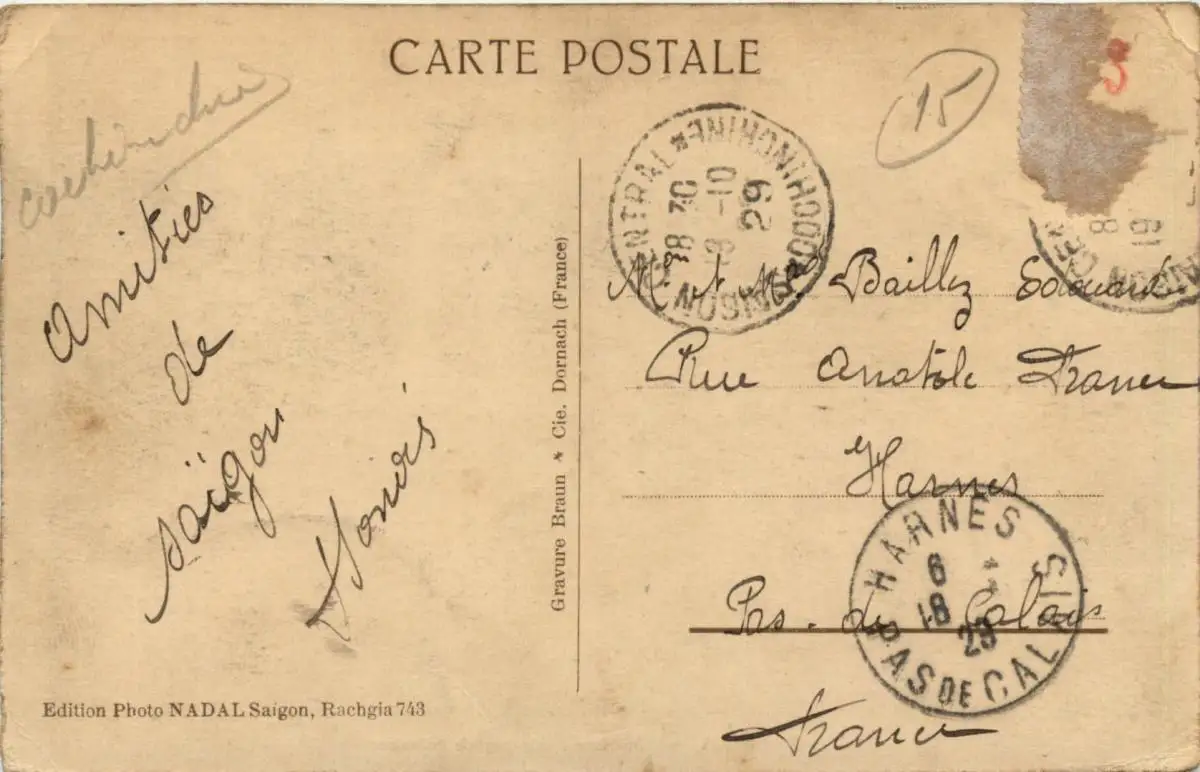 CARTE POSTALE
15
3
cochinchine
Amitiés
de
saïgon
SAIGON CENTRAL * COCHINCHINE *
18 30
19 -10
29
Mr et Me Baillez Edouard
Rue Anatole France
Harnes
Pas-de Calais
France
HARNES
PAS DE CALAIS
6
18
29
Gravure Braun * Cie. Dornach (France)
Edition Photo NADAL Saïgon, Rachgia 743